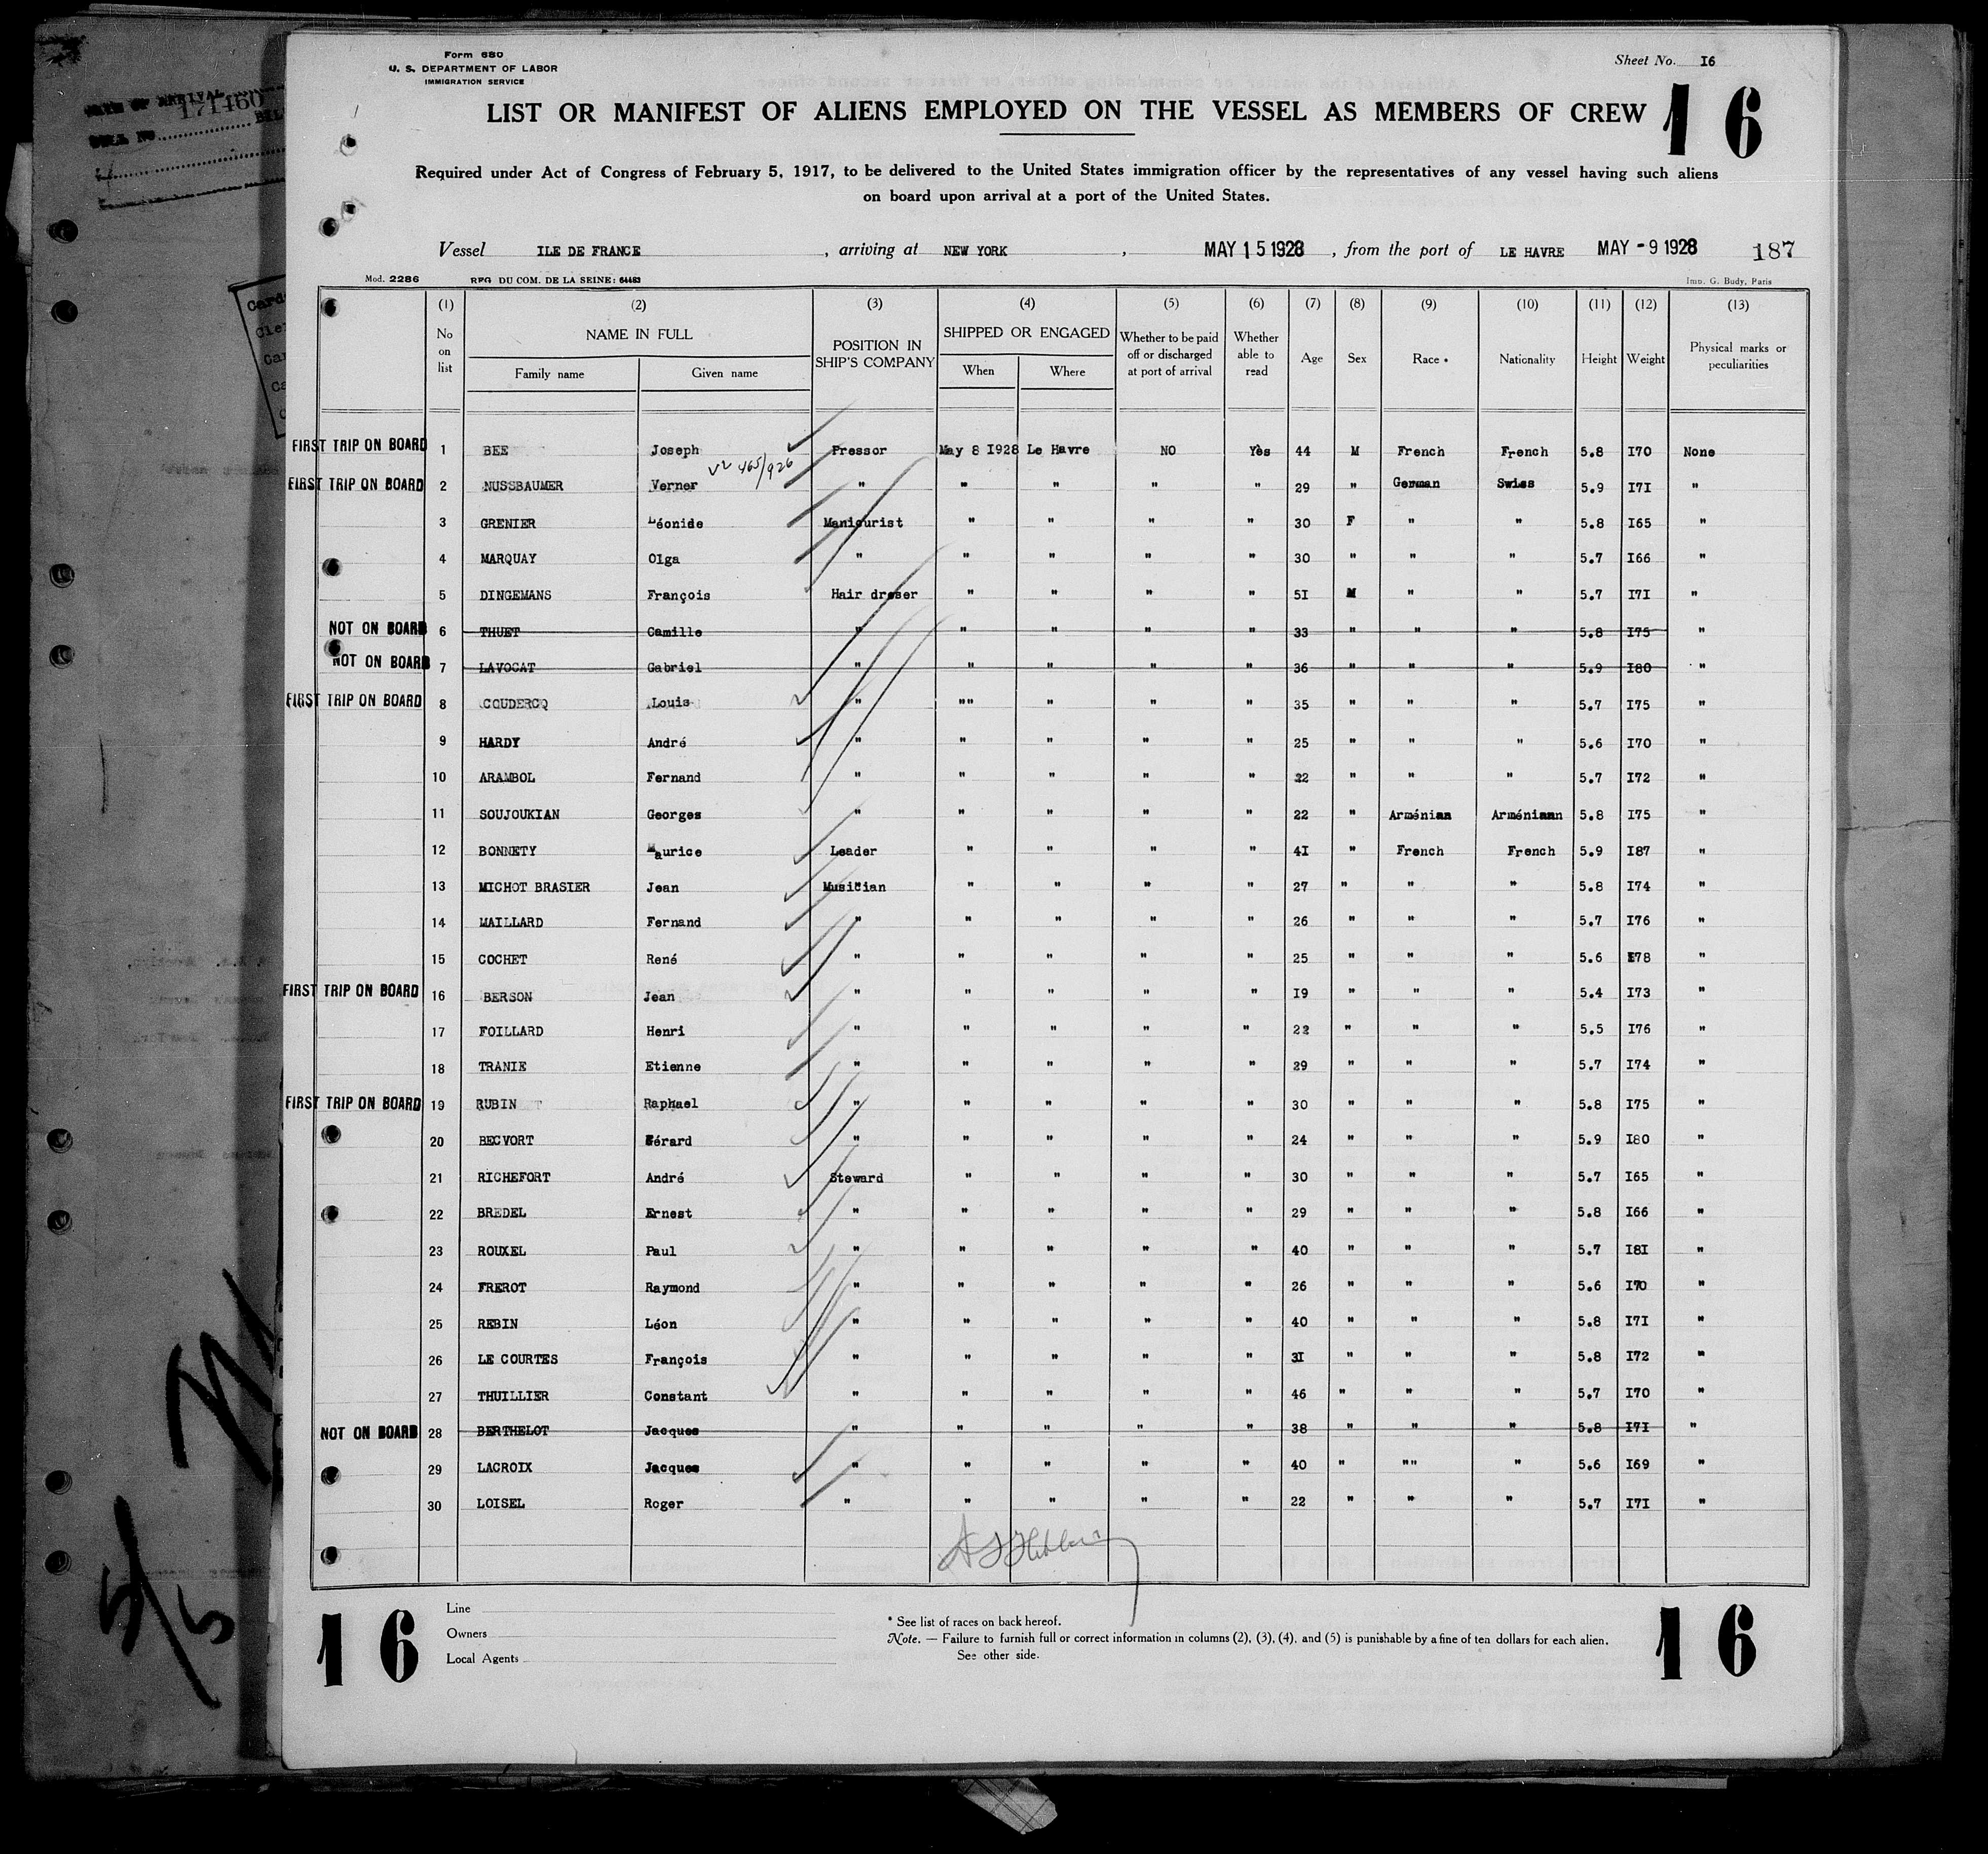 Form 680
U. S. DEPARTMENT OF LABOR
IMMIGRATION SERVICE
Sheet No. I6
LIST OR MANIFEST OF ALIENS EMPLOYED ON THE VESSEL AS MEMBERS OF CREW 16
Required under Act of Congress of February 5, 1917, to be delivered to the United States immigration officer by the representatives of any vessel having such aliens
on board upon arrival at a port of the United States.
Vessel ILE DE FRANCE , arriving at NEW YORK , MAY 15 1928 , from the port of LE HAVRE MAY -9 1928 187
Mod. 2286 REG DU COM. DE LA SEINE: 64483 Imp. G. Budy, Paris
(1) (2) (3) (4) (5) (6) (7) (8) (9) (10) (11) (12) (13)
No on list NAME IN FULL Family name Given name POSITION IN SHIP'S COMPANY SHIPPED OR ENGAGED When Where Whether to be paid off or discharged at port of arrival Whether able to read Age Sex Race * Nationality Height Weight Physical marks or peculiarities
FIRST TRIP ON BOARD 1 BEE Joseph Pressor May 8 I928 Le Havre NO Yès 44 M French French 5.8 I70 None
v2 465/926
FIRST TRIP ON BOARD 2 NUSSBAUMER Verner " " " " " 29 " German Swiss 5.9 I7I "
3 GRENIER Léonide Manicurist " " " " 30 F " " 5.8 I65 "
4 MARQUAY Olga " " " " " 30 " " " 5.7 I66 "
5 DINGEMANS François Hair dreser " " " " 5I M " " 5.7 I7I "
NOT ON BOARD 6 THUET Camille " " " " " 33 " " " 5.8 I75 "
NOT ON BOARD 7 LAVOCAT Gabriel " " " " " 36 " " " 5.9 I80 "
FIRST TRIP ON BOARD 8 COUDERCQ Louis " "" " " " 35 " " " 5.7 I75 "
9 HARDY André " " " " " 25 " " " 5.6 I70 "
10 ARAMBOL Fernand " " " " " 22 " " " 5.7 I72 "
11 SOUJOUKIAN Georges " " " " " 22 " Arménian Arméniann 5.8 I75 "
12 BONNETY Maurice Leader " " " " 4I " French French 5.9 I87 "
13 MICHOT BRASIER Jean Musician " " " " 27 " " " 5.8 I74 "
14 MAILLARD Fernand " " " " " 26 " " " 5.7 I76 "
15 COCHET René " " " " " 25 " " " 5.6 I78 "
FIRST TRIP ON BOARD 16 BERSON Jean " " " " " I9 " " " 5.4 I73 "
17 FOILLARD Henri " " " " " 22 " " " 5.5 I76 "
18 TRANIE Etienne " " " " " 29 " " " 5.7 I74 "
FIRST TRIP ON BOARD 19 RUBIN Raphael " " " " " 30 " " " 5.8 I75 "
20 BECVORT Gérard " " " " " 24 " " " 5.9 I80 "
21 RICHEFORT André Steward " " " " 30 " " " 5.7 I65 "
22 BREDEL Ernest " " " " " 29 " " " 5.8 I66 "
23 ROUXEL Paul " " " " " 40 " " " 5.7 I8I "
24 FREROT Raymond " " " " " 26 " " " 5.6 I70 "
25 REBIN Léon " " " " " 40 " " " 5.8 I7I "
26 LE COURTES François " " " " " 3I " " " 5.8 I72 "
27 THUILLIER Constant " " " " " 46 " " " 5.7 I70 "
NOT ON BOARD 28 BERTHELOT Jacques " " " " " 38 " " " 5.8 I7I "
29 LACROIX Jacques " " " " " 40 " "" " 5.6 I69 "
30 LOISEL Roger " " " " " 22 " " " 5.7 I7I "
Line
Owners
Local Agents
* See list of races on back hereof.
Note. — Failure to furnish full or correct information in columns (2), (3), (4), and (5) is punishable by a fine of ten dollars for each alien.
See other side.
16 16
171460
5/15